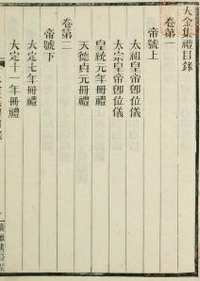 大金集禮目錄
卷第一
帝號上
太祖皇帝卽位儀
太宗皇帝卽位儀
皇統元年冊禮
天德貞元冊禮
卷第二
帝號下
大定七年冊禮
大定十一年冊禮